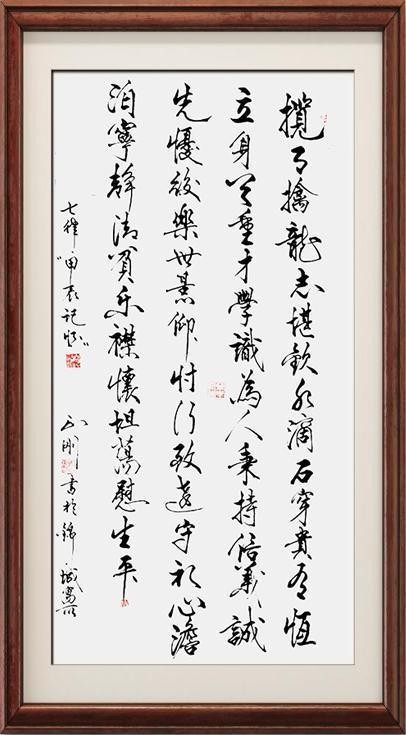 攬月擒龍志堪欽水滴石穿貴有恆
立身重才學識為人秉持信義誠
先憂後樂世景仰行致遠守初心澹
泊寧靜清貧樂襟懷坦蕩慰生平
七律"甲辰記懷"
書於錦城寓所